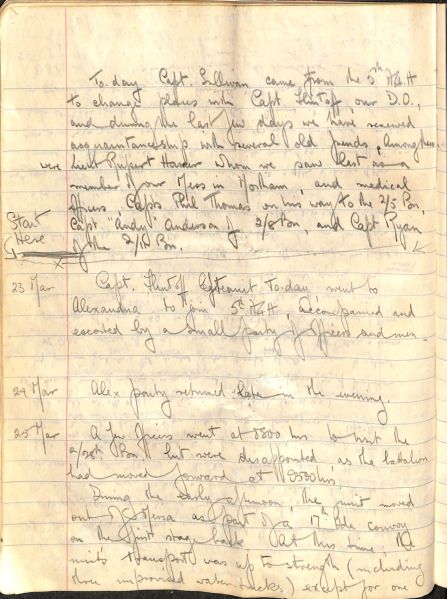 To-day Capt. Sullivan came from the 5th AGH
to change places with Capt Flintoff, our D.O.,
and during the last few days we have renewed
acquaintanceship with several old friends. Among these
were Lieut Rupert whom we saw last as a
member of our Mess in , and medical
officers, Capts Phil Thomas on his way to the 2/5 Bn,
Capt "Andy" Anderson of 2/8 Bn, and Capt Ryan
Start
Here
of the Bn.
23 Mar Capt. Flintoff to-day went to
Alexandria to join 5th AGH, accompanied and
escorted by a small party of officers and men.
24 Mar Alex party returned late in the evening.
25 Mar A few officers went at 0800 hrs to visit the
2/28th Bn but were disappointed, as the battalion
had moved forward at 0500 hrs.
During the early afternoon, the unit moved
out of as part of a 17th Bde convoy
on the first stage back At this time, the
unit's transport was up to strength (including
three improvised water trucks) except for one